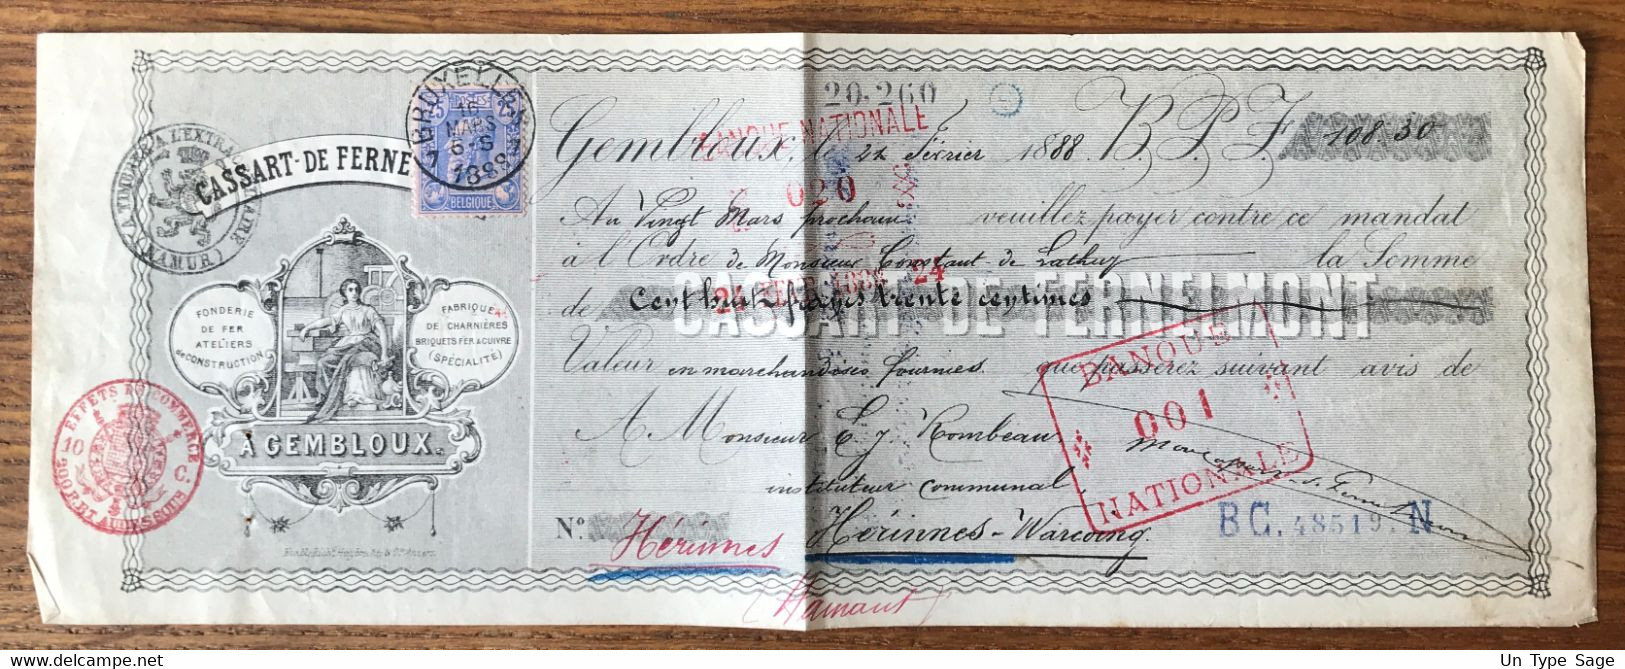 20.260
BRUXELLES 7
16
MARS
6-S
1888
POSTES
25 25
BELGIQUE
A TIMBRER A L'EXTRAORDINAIRE
(NAMUR)
CASSART-DE FERNE
BANQUE NATIONALE
020
24 FEV 1888 24
Gembloux, le 22 Février 1888 B.P.F 108.30
Au Vingt Mars prochain veuillez payer contre ce mandat
à l'Ordre de Monsieur Constant de Lathuy la Somme
de Cent huit francs trente centimes
CASSART-DE FERNELMONT
Valeur en marchandises fournies que passerez suivant avis de
A Monsieur E. J. Rombeau
instituteur communal,
Hérinnes-Warcoing
Nº
Hérinnes
(Hainaut)
FONDERIE
DE FER
ATELIERS
de CONSTRUCTION
FABRIQUE
DE CHARNIÈRES
BRIQUETS FER & CUIVRE
(SPÉCIALITÉ)
À GEMBLOUX.
EFFETS DE COMMERCE
10 C.
200 F. ET AU DESSOUS
BANQUE
001
NATIONALE
BC. 48519. N
Un Type Sage